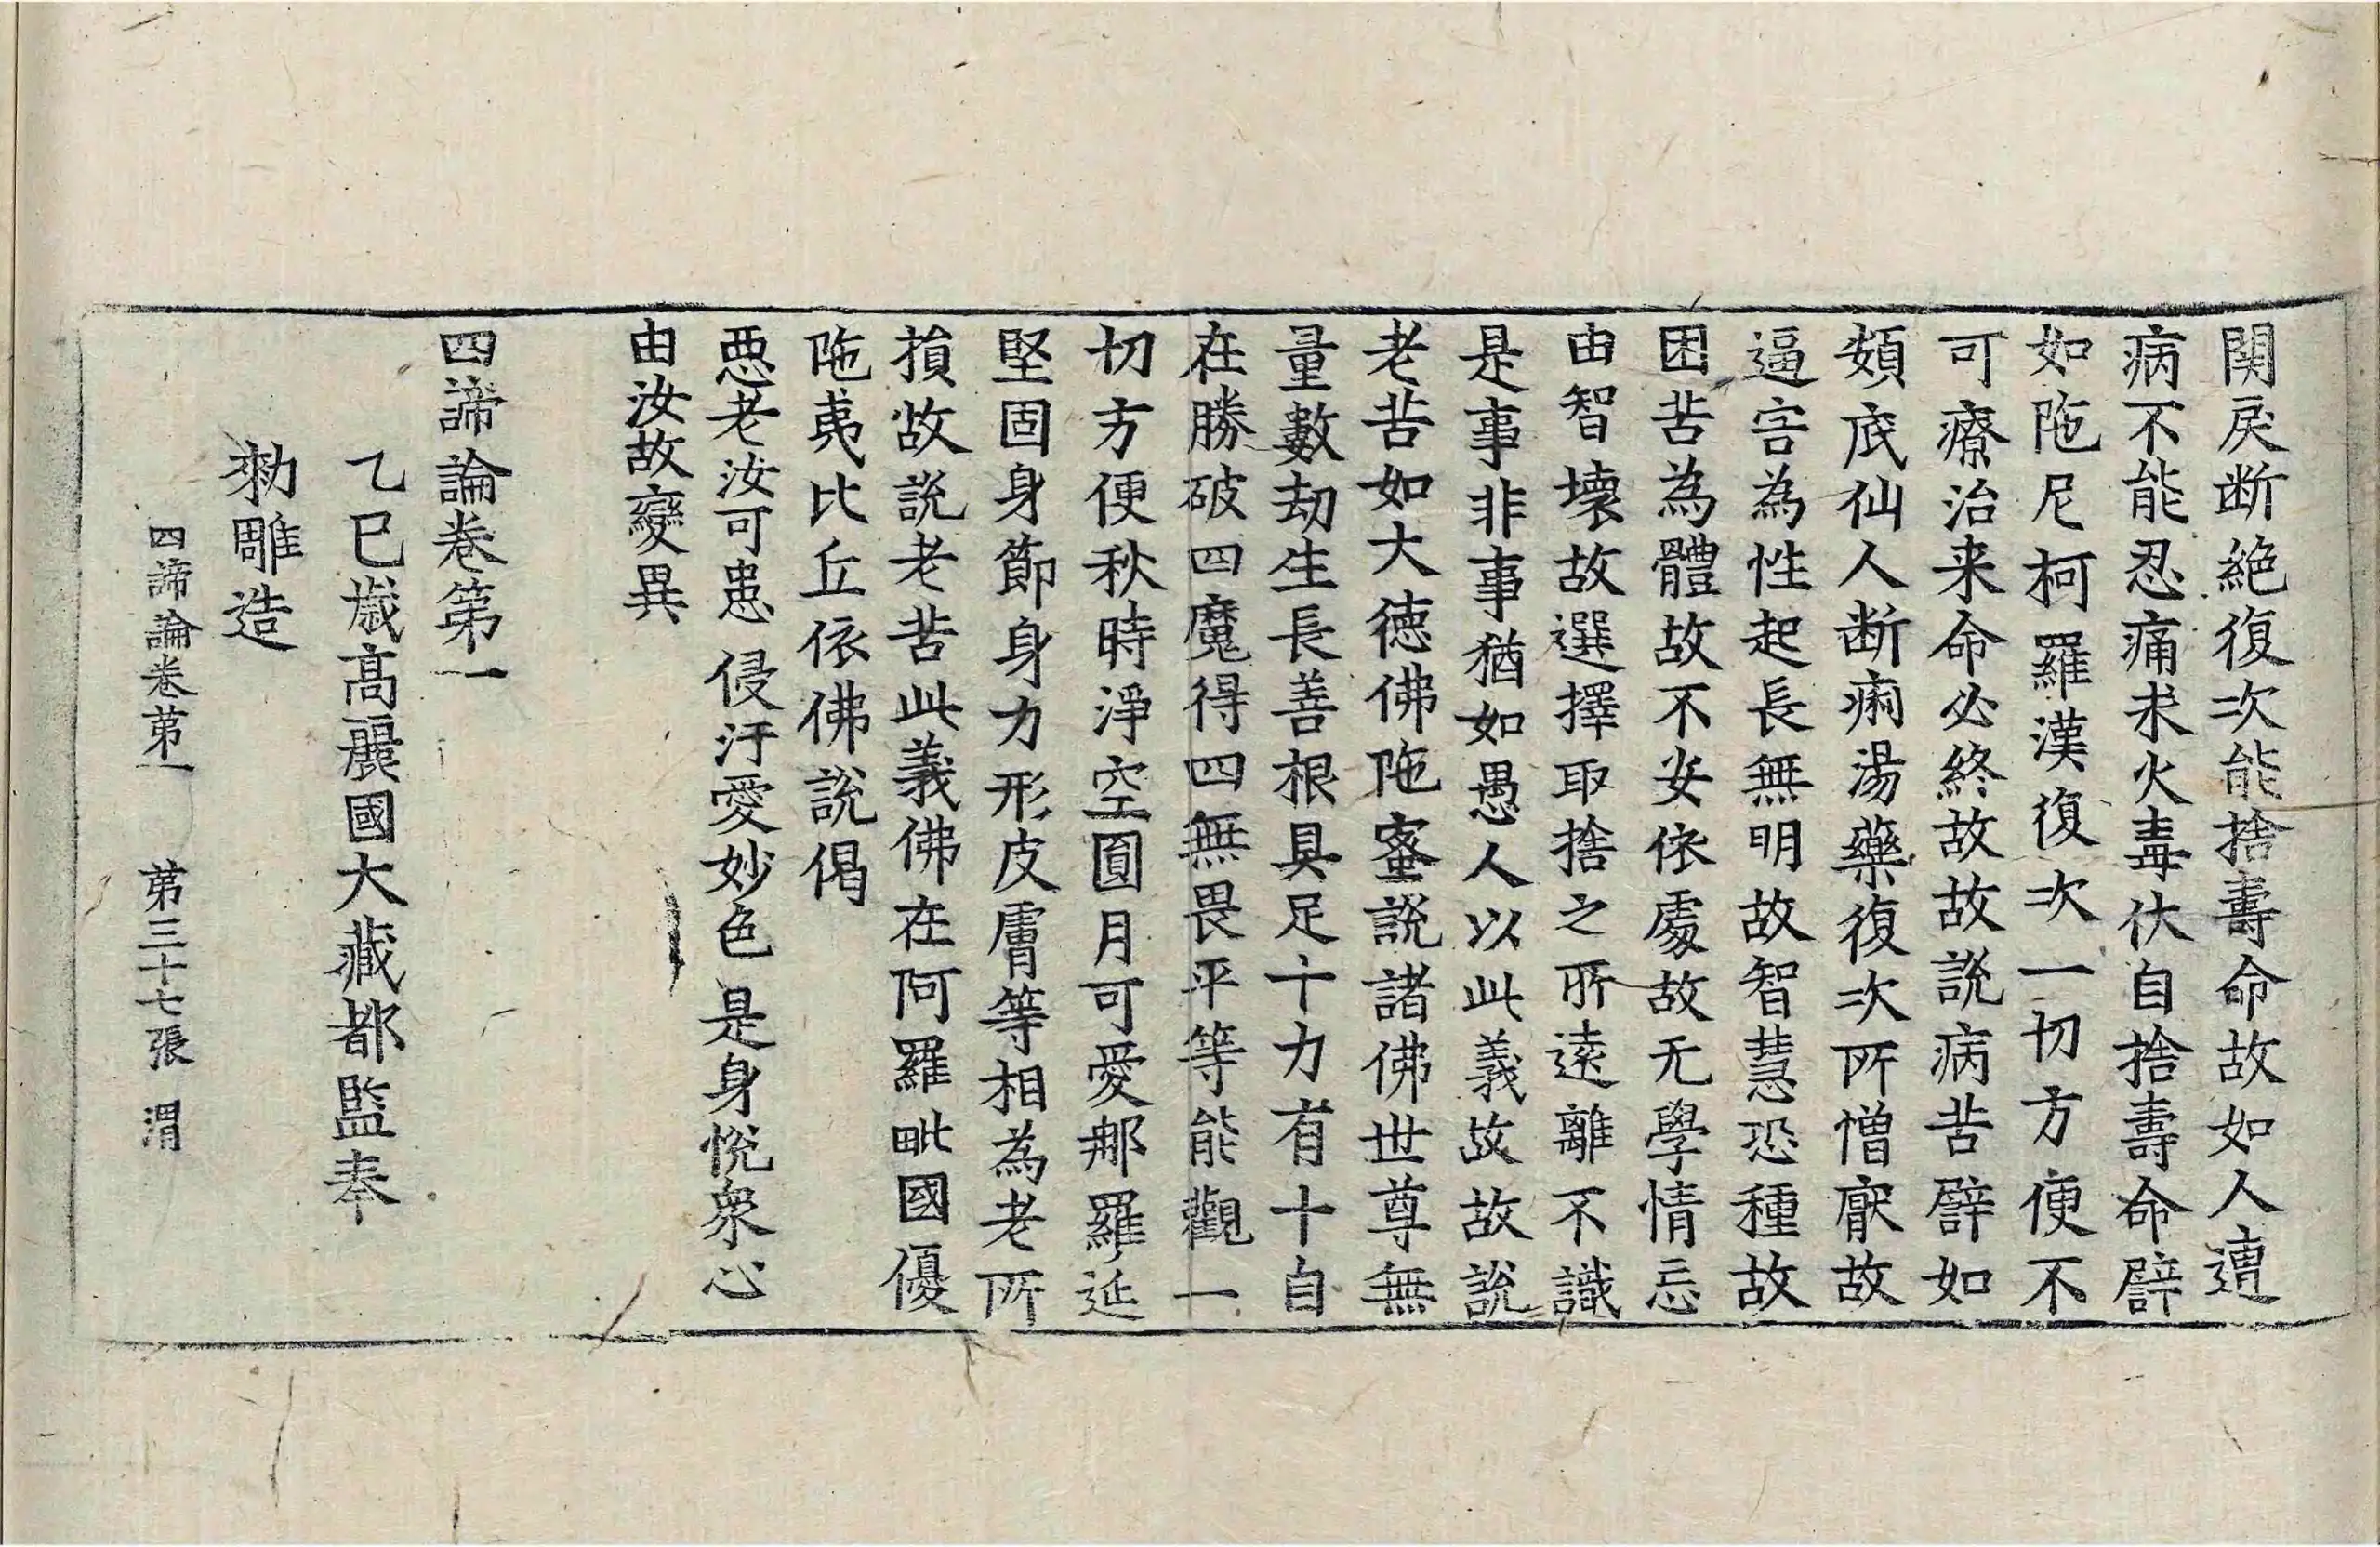 関戾断絶復次能捨壽命故如人遭
病不能忍痛求火毒仗自捨壽命譬
如陁尼柯羅漢復次一切方便不
可療治来命必終故故說病苦譬如
頞底仙人断痢湯藥復次所憎猒故
逼害為性起長無明故智慧恐種故
困苦為體故不安依處故无學情忘
由智壞故選擇取捨之所遠離不識
是事非事猶如愚人以此義故故說
老苦如大徳佛陁蜜說諸佛世尊無
量數劫生長善根具足十力有十自
在勝破四魔得四無畏平等能觀一
切方便秋時淨空圓月可愛那羅延
堅固身節身力形皮膚等相為老所
損故說老苦此義佛在阿羅毗國優
陁夷比丘依佛說偈
惡老汝可患 侵汙愛妙色 是身悅衆心
由汝故變異
四諦論卷第一
乙巳歲高麗國大藏都監奉
勑雕造
四諦論卷第一 第三十七張 渭